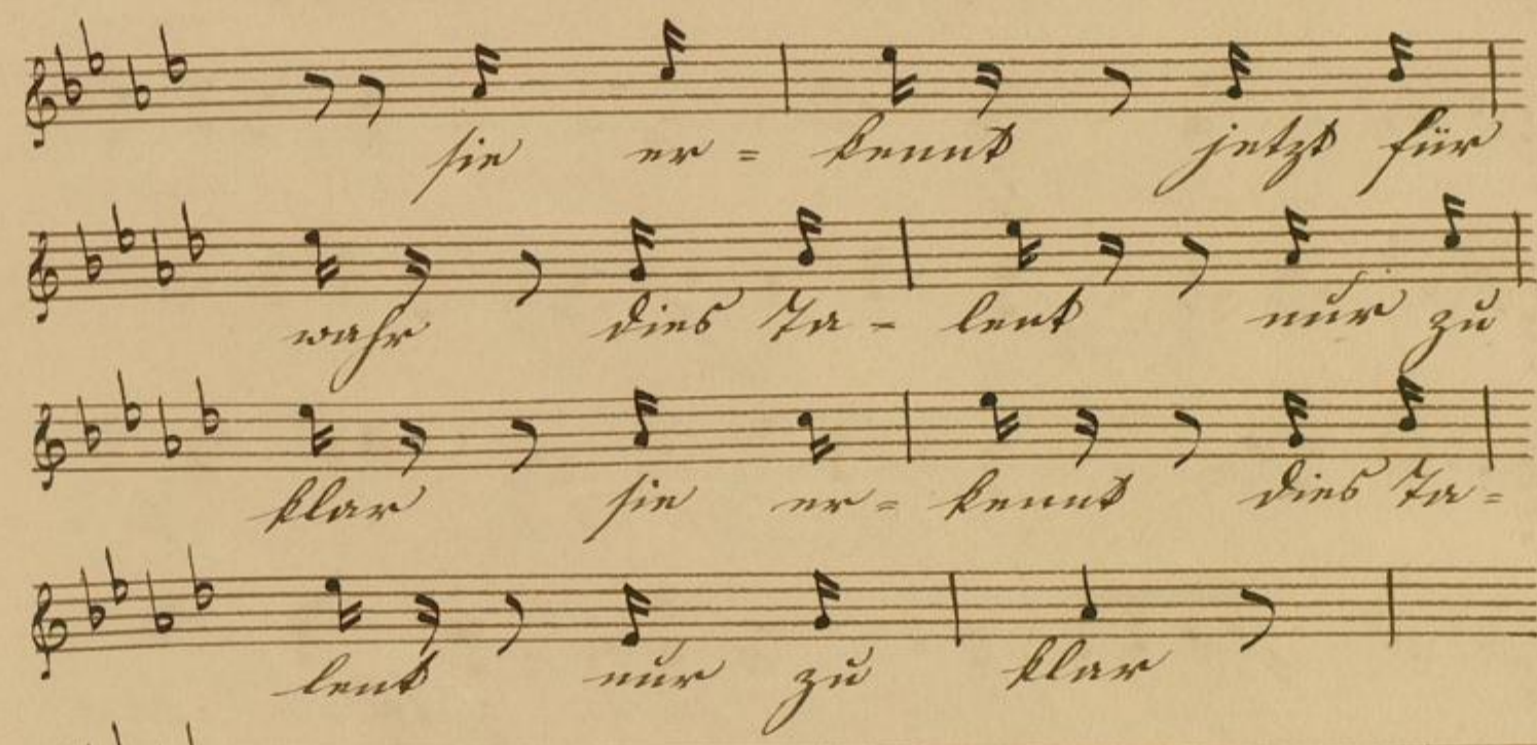 sie er= kennt jetzt für
wahr dies Ta- lent nur zu
klar sie er= kennt dies Ta=
lent nur zu klar